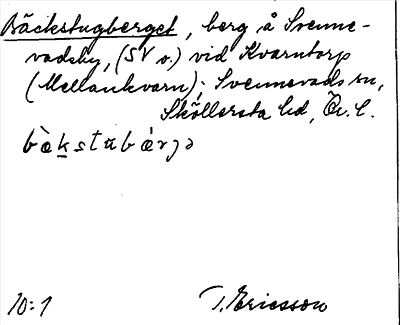 Bäckstugberget, berg å Svenne-
vadsby, (SV o.) vid Kvarntorp
(Mellankvarn); Svennevads sn,
Sköllersta hd, Ör. l.
10:1 T. Ericsson